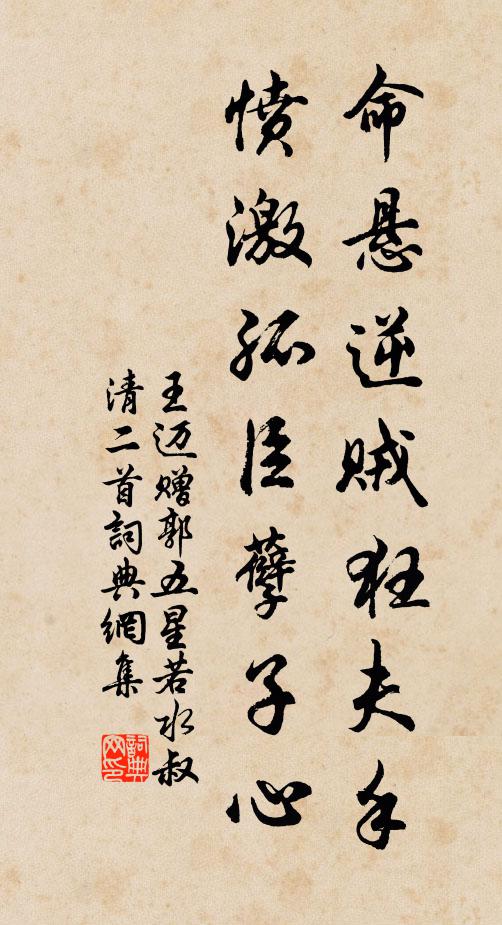 命悬逆贼狂夫手
愤激孤臣孽子心
王迈赠郭五星若水叔
清二首詞典網集
詞典网印